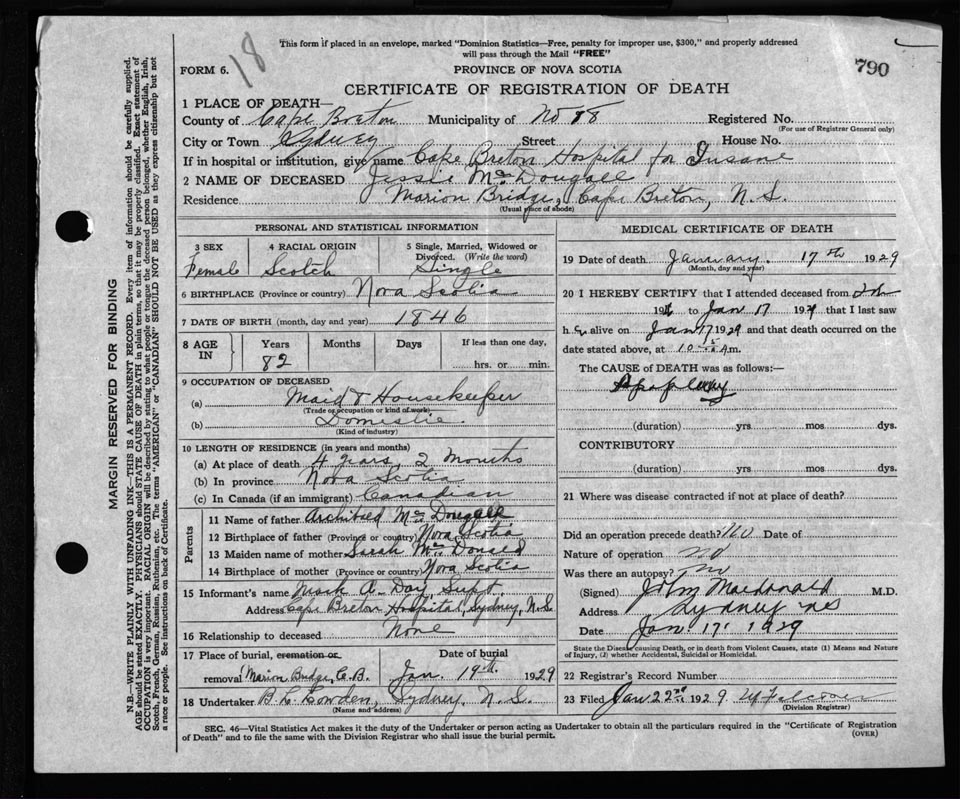 18
This form if placed in an envelope, marked "Dominion Statistics—Free, penalty for improper use, $300," and properly addressed
will pass through the Mail "FREE"
790
FORM 6.
PROVINCE OF NOVA SCOTIA
CERTIFICATE OF REGISTRATION OF DEATH
1 PLACE OF DEATH—
County of Cape Breton Municipality of No 18 Registered No.
(For use of Registrar General only)
City or Town Sydney Street House No.
If in hospital or institution, give name Cape Breton Hospital for Insane
2 NAME OF DECEASED Jessie McDougall
Residence Marion Bridge, Cape Breton, N. S.
(Usual place of abode)
PERSONAL AND STATISTICAL INFORMATION
3 SEX 4 RACIAL ORIGIN 5 Single, Married, Widowed or
Divorced. (Write the word)
Female Scotch Single
6 BIRTHPLACE (Province or country) Nova Scotia
7 DATE OF BIRTH (month, day and year) 1846
8 AGE IN Years Months Days If less than one day,
82 hrs. or min.
9 OCCUPATION OF DECEASED
(a) Maid & Housekeeper
(Trade or occupation or kind of work)
(b) Domestic.
(Kind of industry)
10 LENGTH OF RESIDENCE (in years and months)
(a) At place of death 4 years 2 months
(b) In province Nova Scotia
(c) In Canada (if an immigrant) Canadian
Parents
11 Name of father Archibald McDougall
12 Birthplace of father (Province or country) Nova Scotia
13 Maiden name of mother Sarah McDonald
14 Birthplace of mother (Province or country) Nova Scotia
15 Informant's name A. Day, Supt
Address Cape Breton Hospital, Sydney, N.S.
16 Relationship to deceased None
17 Place of burial, cremation or Date of burial
removal Marion Bridge, C.B. Jan. 19th. 1929
18 Undertaker B. L. Lowden, Sydney, N. S.
(Name and address)
MEDICAL CERTIFICATE OF DEATH
19 Date of death January. 17th 1929
(Month, day and year)
20 I HEREBY CERTIFY that I attended deceased from
19 to Jan 17 1929 that I last saw
h alive on Jan 17 1929 and that death occurred on the
date stated above, at 10 15 A m.
The CAUSE of DEATH was as follows:—
Apoplexy
(duration) yrs mos dys.
CONTRIBUTORY
(duration) yrs. mos. dys.
21 Where was disease contracted if not at place of death?
Did an operation precede death? No Date of
Nature of operation no
Was there an autopsy? no
(Signed) Macdonald M.D.
Address Sydney NS
Date Jan. 17. 1929
State the Disease causing Death, or in death from Violent Causes, state (1) Means and Nature
of Injury, (2) whether Accidental, Suicidal or Homicidal.
22 Registrar's Record Number
23 Filed Jan 22nd 1929
(Division Registrar)
SEC. 46—Vital Statistics Act makes it the duty of the Undertaker or person acting as Undertaker to obtain all the particulars required in the "Certificate of Registration
of Death" and to file the same with the Division Registrar who shall issue the burial permit.
(OVER)
MARGIN RESERVED FOR BINDING
N.B.—WRITE PLAINLY WITH UNFADING INK—THIS IS A PERMANENT RECORD. Every item of information should be carefully supplied.
AGE should be stated EXACTLY. PHYSICIANS should STATE CAUSE OF DEATH in plain terms, so that it may be properly classified. Exact statement of
OCCUPATION is very important. RACIAL ORIGIN will be described by stating to what people or tongue the deceased person belonged, whether English, Irish,
Scotch, French, German, Russian, Ruthenian, etc. The terms "AMERICAN" or "CANADIAN" SHOULD NOT BE USED as they express citizenship but not
a race or people. See instructions on back of Certificate.